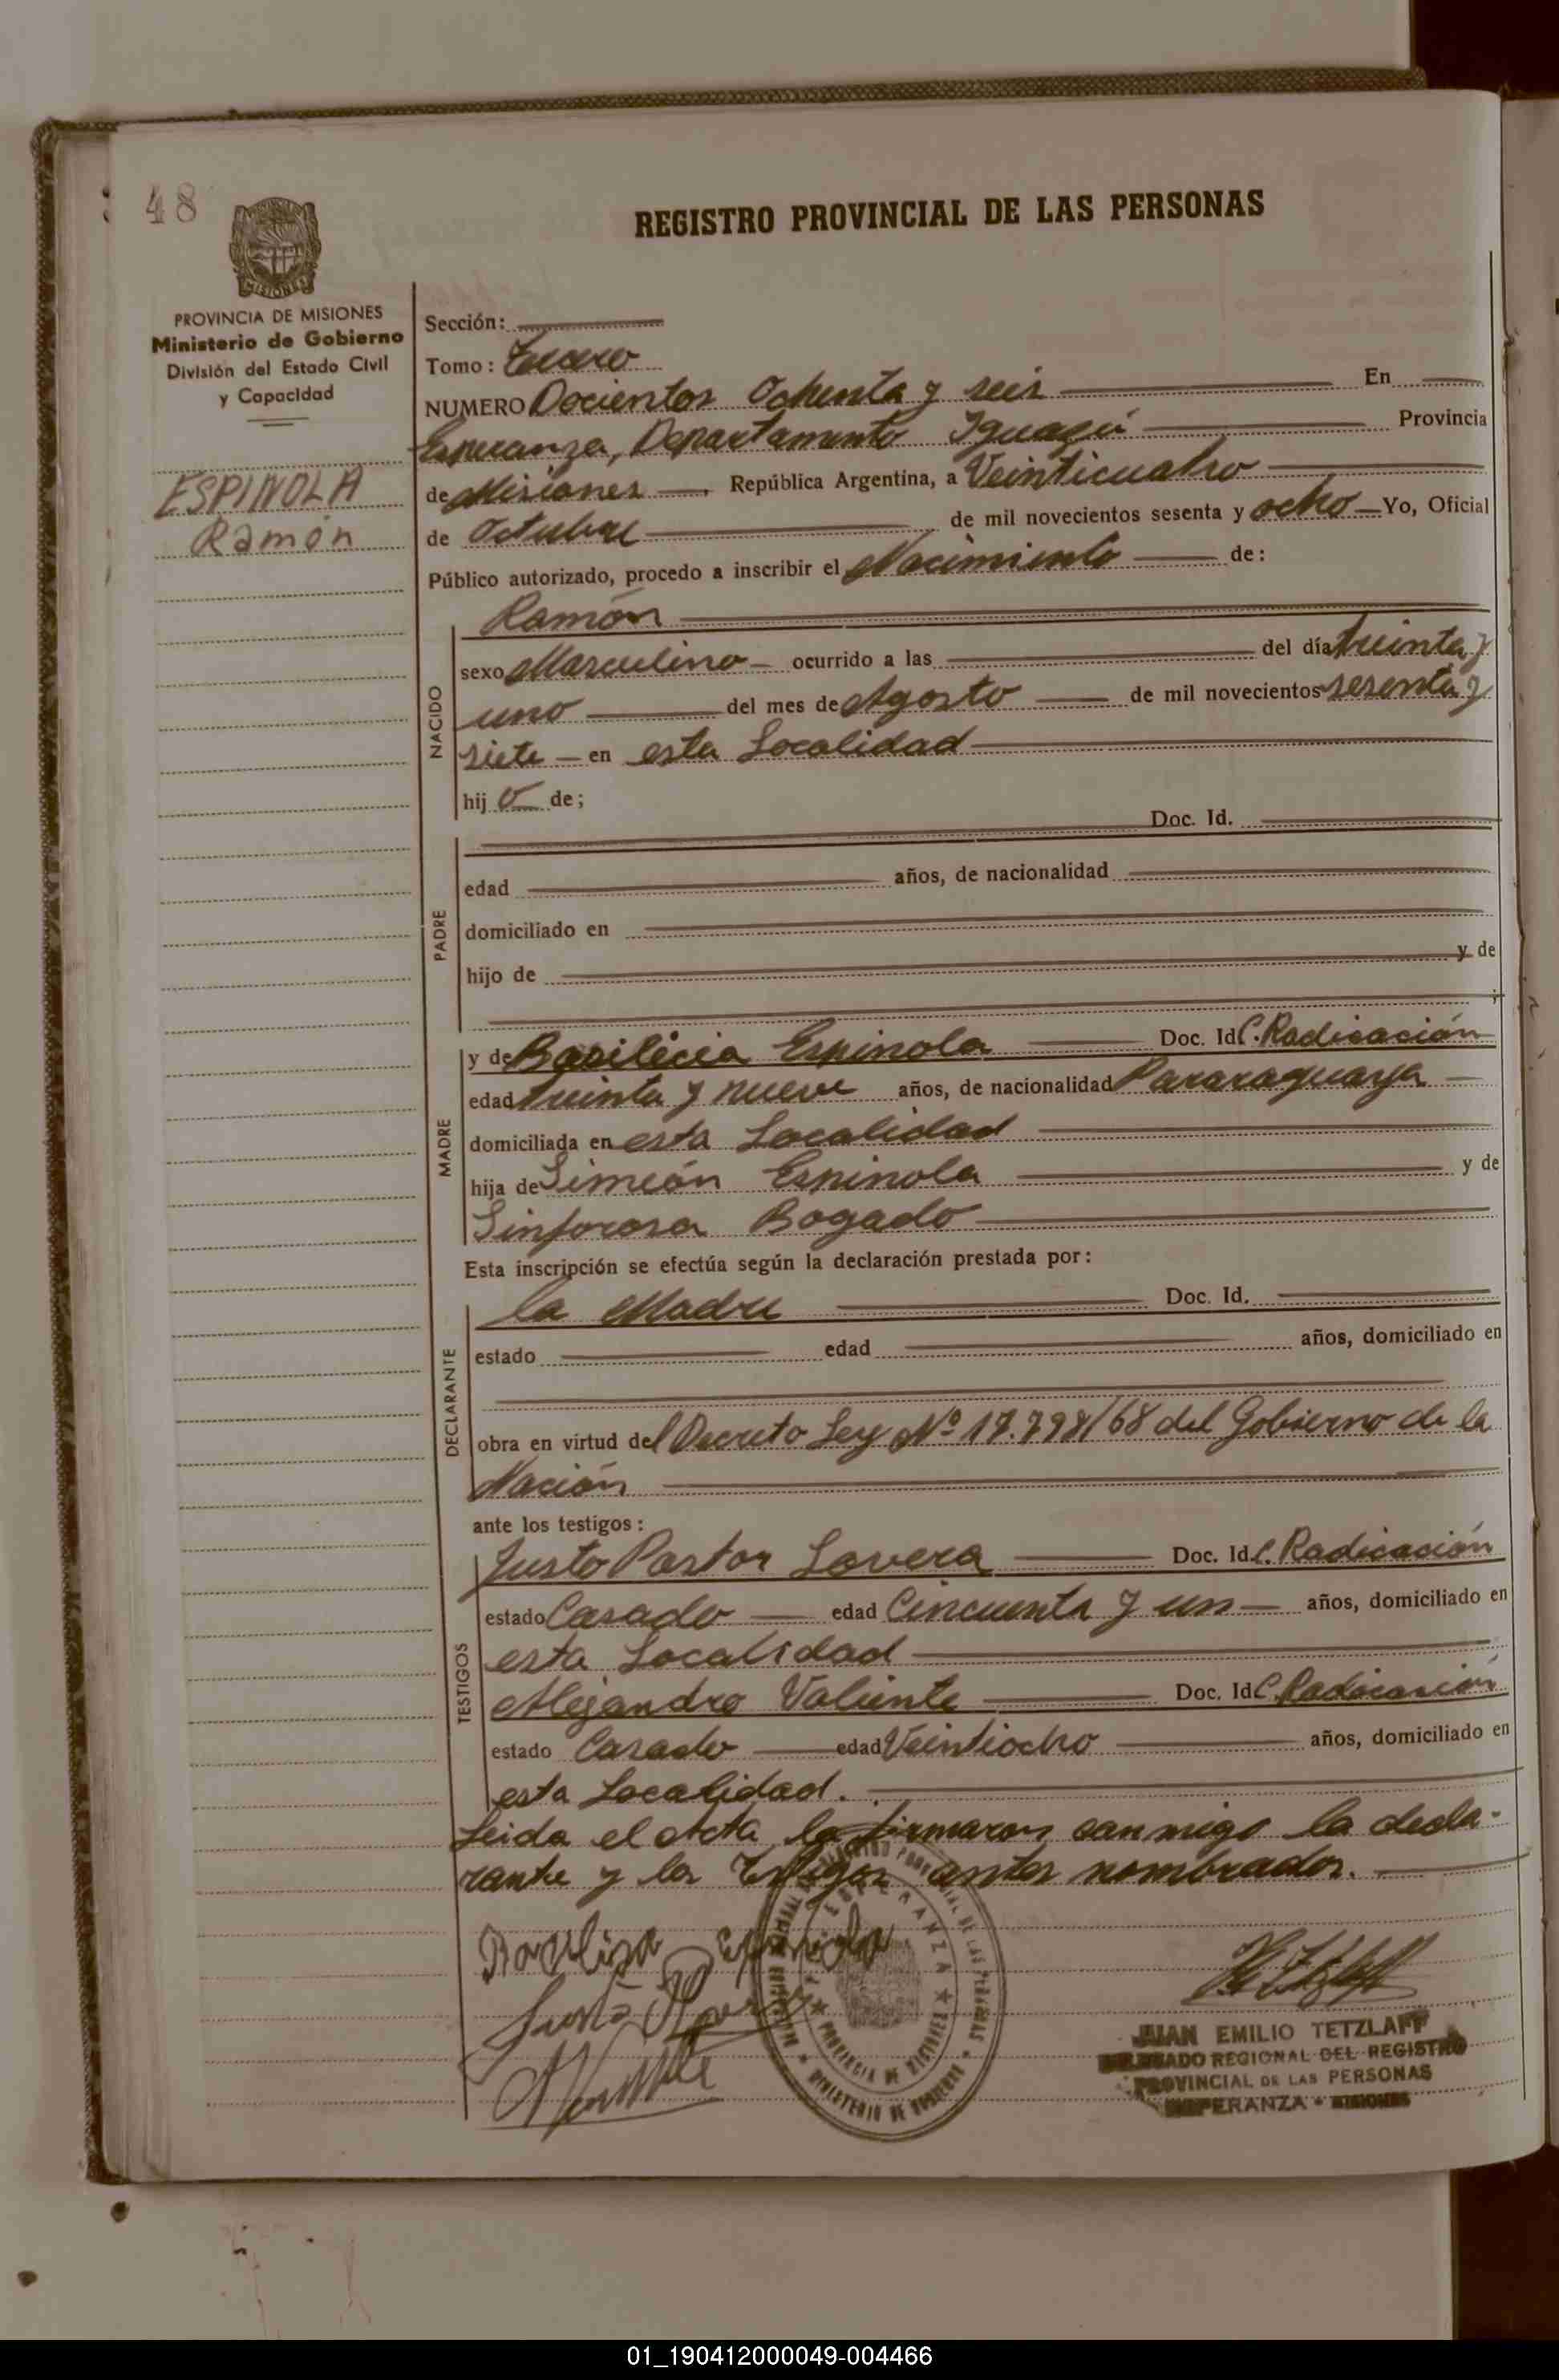 48
REGISTRO PROVINCIAL DE LAS PERSONAS
MISIONES
PROVINCIA DE MISIONES
Ministerio de Gobierno
División del Estado Civil
y Capacidad
ESPINOLA
Ramón
Sección:
Tomo: Tercero
NUMERO Docientos Ochenta y seis En
Esperanza, Departamento Iguazú Provincia
de Misiones República Argentina, a Veinticuatro
de Octubre de mil novecientos sesenta y ocho Yo, Oficial
Público autorizado, procedo a inscribir el Nacimiento de:
NACIDO
Ramón
sexo Masculino ocurrido a las del día treinta y
uno del mes de Agosto de mil novecientos sesenta y
siete en esta Localidad
hij o de;
PADRE
Doc. Id.
edad años, de nacionalidad
domiciliado en
hijo de y de
;
MADRE
y de Basilicia Espinola Doc. Id C. Radicación
edad treinta y nueve años, de nacionalidad Pararaguaya
domiciliada en esta Localidad
hija de Simeón Espinola y de
Sinforosa Bogado
Esta inscripción se efectúa según la declaración prestada por:
DECLARANTE
la Madre Doc. Id.
estado edad años, domiciliado en
obra en virtud del Decreto Ley Nº 17.798/68 del Gobierno de la
Nación
ante los testigos:
TESTIGOS
Justo Pastor Lovera Doc. Id C. Radicación
estado Casado edad Cincuenta y un años, domiciliado en
esta Localidad
Alejandro Valiente Doc. Id C. Radicación
estado Casado edad Veintiocho años, domiciliado en
esta Localidad.
Leida el Acta la firmaron conmigo la decla-
rante y los Testigos antes nombrados.
Espinola
ESPERANZA
PROVINCIA DE MISIONES
MINISTERIO DE GOBIERNO
JUAN EMILIO TETZLAFF
DELEGADO REGIONAL DEL REGISTRO
PROVINCIAL DE LAS PERSONAS
ESPERANZA - MISIONES
01_190412000049-004466